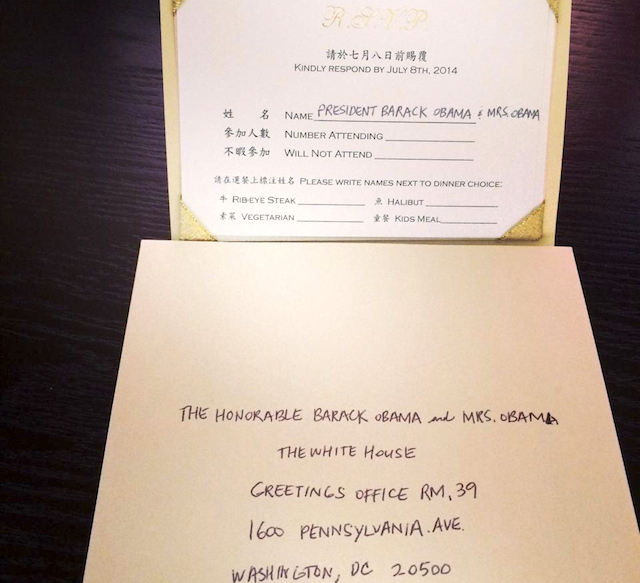 R.S.V.P
請於七月八日前賜覆
KINDLY RESPOND BY JULY 8TH, 2014
姓 名 NAME PRESIDENT BARACK OBAMA & MRS. OBAMA
參加人數 NUMBER ATTENDING
不暇參加 WILL NOT ATTEND
請在選餐上標注姓名 PLEASE WRITE NAMES NEXT TO DINNER CHOICE:
牛 RIB-EYE STEAK 魚 HALIBUT
素菜 VEGETARIAN 童餐 KIDS MEAL
THE HONORABLE BARACK OBAMA and MRS. OBAMA
THE WHITE HOUSE
GREETINGS OFFICE RM. 39
1600 PENNSYLVANIA. AVE.
WASHINGTON, DC 20500